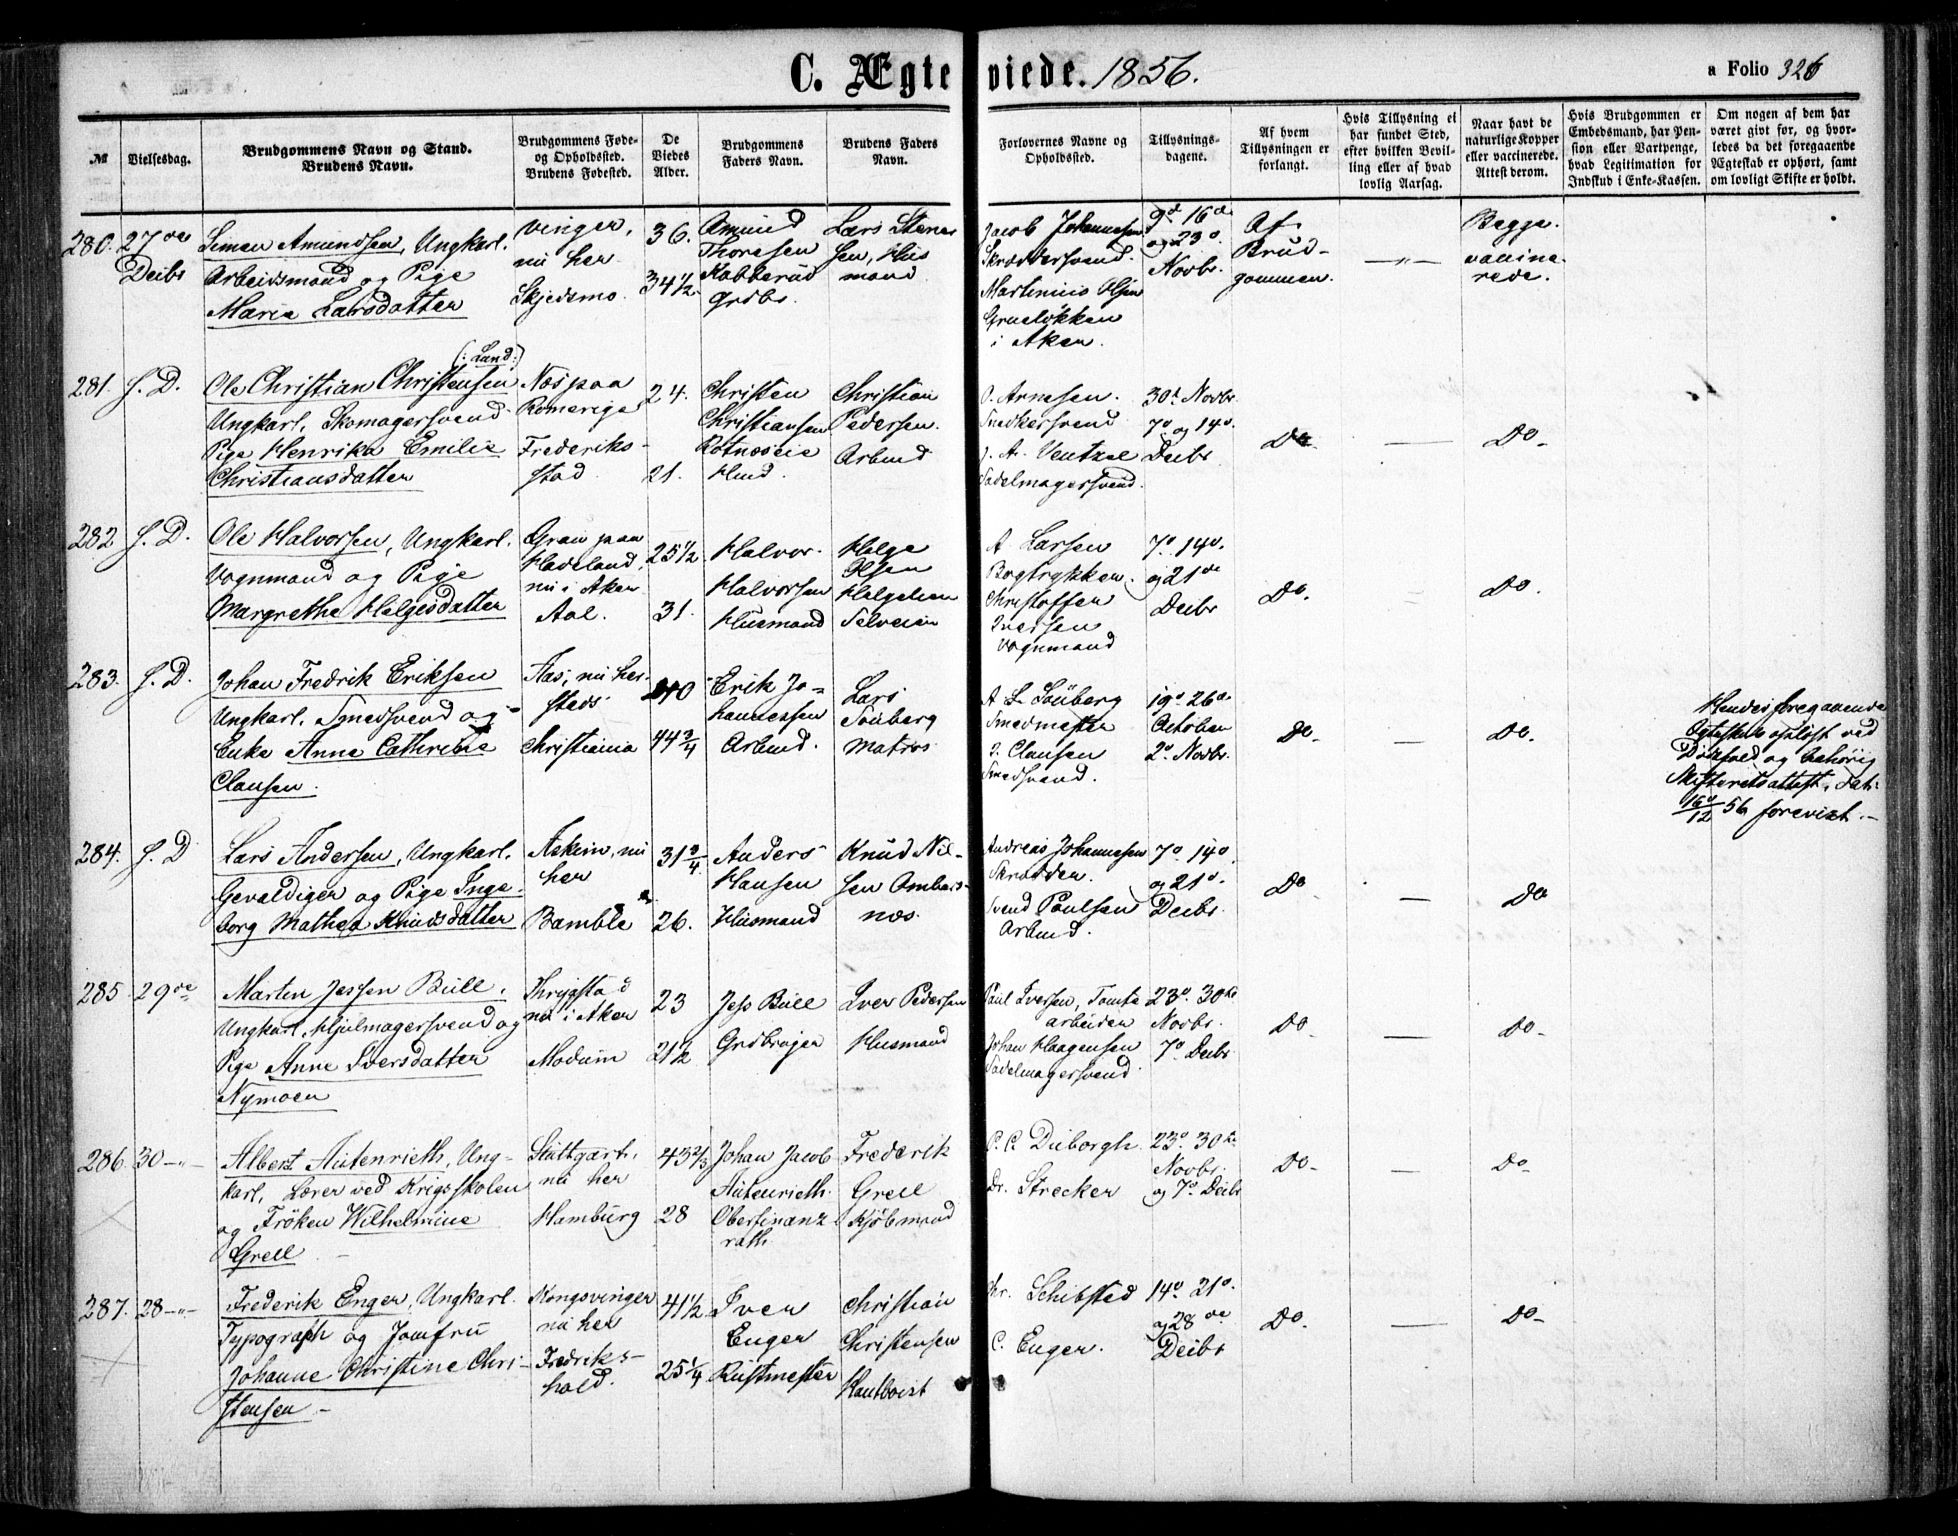 C. Ægteviede. 1856.
a Folio 326
№
Vielsesdag.
Brudgommens Navn og Stand.
Brudens Navn.
Brudgommens Føde-
og Opholdssted.
Brudens Fødested.
De
Viedes
Alder.
Brudgommens
Faders Navn.
Brudens Faders
Navn.
Forlovernes Navne og
Opholdssted.
Tillysnings-
dagene.
Af hvem
Tillysningen er
forlangt.
Hvis Tillysning ei
har fundet Sted,
efter hvilken Bevil-
ling eller af hvad
lovlig Aarsag.
Naar havt de
naturlige Kopper
eller vaccinerede.
Attest derom.
Hvis Brudgommen er
Embedsmand, har Pen-
sion eller Vartpenge,
hvad Legitimation for
Indskud i Enke-Kassen.
Om nogen af dem har
været givt før, og hvor-
ledes da det foregaaende
Ægteskab er ophørt, samt
om lovligt Skifte er holdt.
280. 27de
Deibr
Simen Amundsen, Ungkarl.
Arbeidsmand og Pige
Maria Larsdatter
Vinger,
nu her
Skjedsmo.
36.
34 1/2.
Amund
Thoresen
Kabberud
Grdbr.
Lars Stenes
sen, Hus
mand
Jacob Johannesen
Skræddersvend.
Martinius Olsen
Grueløkken
i Aker.
9d 16d
og 23d.
Novbr.
Af
Brud-
gommen.
—„—
Begge
vaccine
rede.
281. S. D.
(: Lund :)
Ole Christian Christensen
Ungkarl, Skomagersvend
Pige Henrika Emilie
Christiansdatter
Næs paa
Romerige
Frederiks-
stad
24.
21.
Christen
Christiansen
Rotnæseie
Hmd.
Christian
Pedersen.
Arbmd
O. Arnesen.
Snedkersvend
J. A. Ventzel
Sadelmagersvend.
30t Novbr.
7d og 14d.
Deibr
Do
—
Do-
282 S. D.
Ole Halvorsen, Ungkarl.
Vognmand og Pige
Margrethe Helgesdatter
Gran paa
Hadeland,
nu i Aker
Aal.
25 1/2
31.
Halvor
Halvorsen
Husmand
Helge
Olsen
A Larsen
Bogtrykker.
Christoffer
Iversen
Vognmand
7d 14d.
og 21de
Deibr
Do.
Do.
283. S. D.
Johan Fredrik Eriksen
Ungkarl. Smedsvend og
Enke Anne Cathrine
Clausen.
Aas, nu her-
steds
Christiania
40
44 3/4
Erik Jo-
hannessen
Arbmd.
Lars
Souberg
Matros
A L Souberg
Smedmester
O. Clausen
Smedsvend.
19d 26d.
October
2d Novbr.
Do-
—
Do.
Hendes foregaaende
Ægteskab opløst ved
Dødsfald og behørig
Skifteretsattest, dat:
16d/12 56 forevist.-
284. S. D
Lars Andersen, Ungkarl.
Gevaldiger og Pige Inge-
borg Mathea Knudsdatter
Askim, nu
her
Bamble
31 3/4
26.
Anders
Hansen
Husmand
Knud Nil-
sen Ombars-
næs.
Andreas Johannesen
Skrædder.
Svend Poulsen
Arbmd.
7d. 14d
og 21d.
Deibr.
Do
—
Do
285 29de
Marten Jessen Bull.
Ungkarl. Hjulmagersvend og
Pige Anne Iversdatter
Nymoen
Thrygstad
nu i Aker
Modum
23
21 1/2
Jess Bull
Grdbruger
Iver Pedersen
Husmand
Paul Iversen, Tomte
arbeider
Johan Haagensen
Sadelmagersvend.
23d. 30te
Novbr.
7d Deibr
Do
—
Do-
286. 30 -„-
Albert Autenrieth, Ung-
karl, Lærer ved Krigsskolen
og Frøken Wilhelmine
Grell
Stuttgart,
nu her
Hamburg
43 2/3
28
Johan Jacob
Autenrieth.
Oberfinanz
rath.
Frederik
Grell
Kjøbmand
C. C. Dieborgh
Dr. Strecker
23d. 30te
Novbr.
og 7d. Deibr
Do-
—
Do-
287. 28 -„-
Frederik Enger, Ungkarl.
Typograph og Jomfru
Johanne Christine Chri-
stensen -
Kongsvinger
nu her
Fredriks-
hald.
41 1/2
25 1/4
Iver
Enger
Rustmester
Christian
Christensen
Chr. Schibsted
C. Enger.
14d 21d.
og 28de
Deibr
Do.
—
Do-